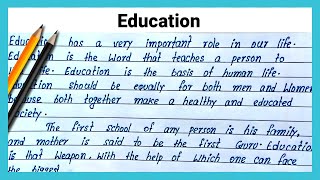 Education
has a very important role in our life.
is the Word that teaches a person to
life. Education is the basis of human life.
should be equally for both men and Women
because both together make a healthy and educated
society.
The first school of any person is his family,
and mother is said to be the first Guru. Education
is that Weapon, With the help of Which one can face
the biggest